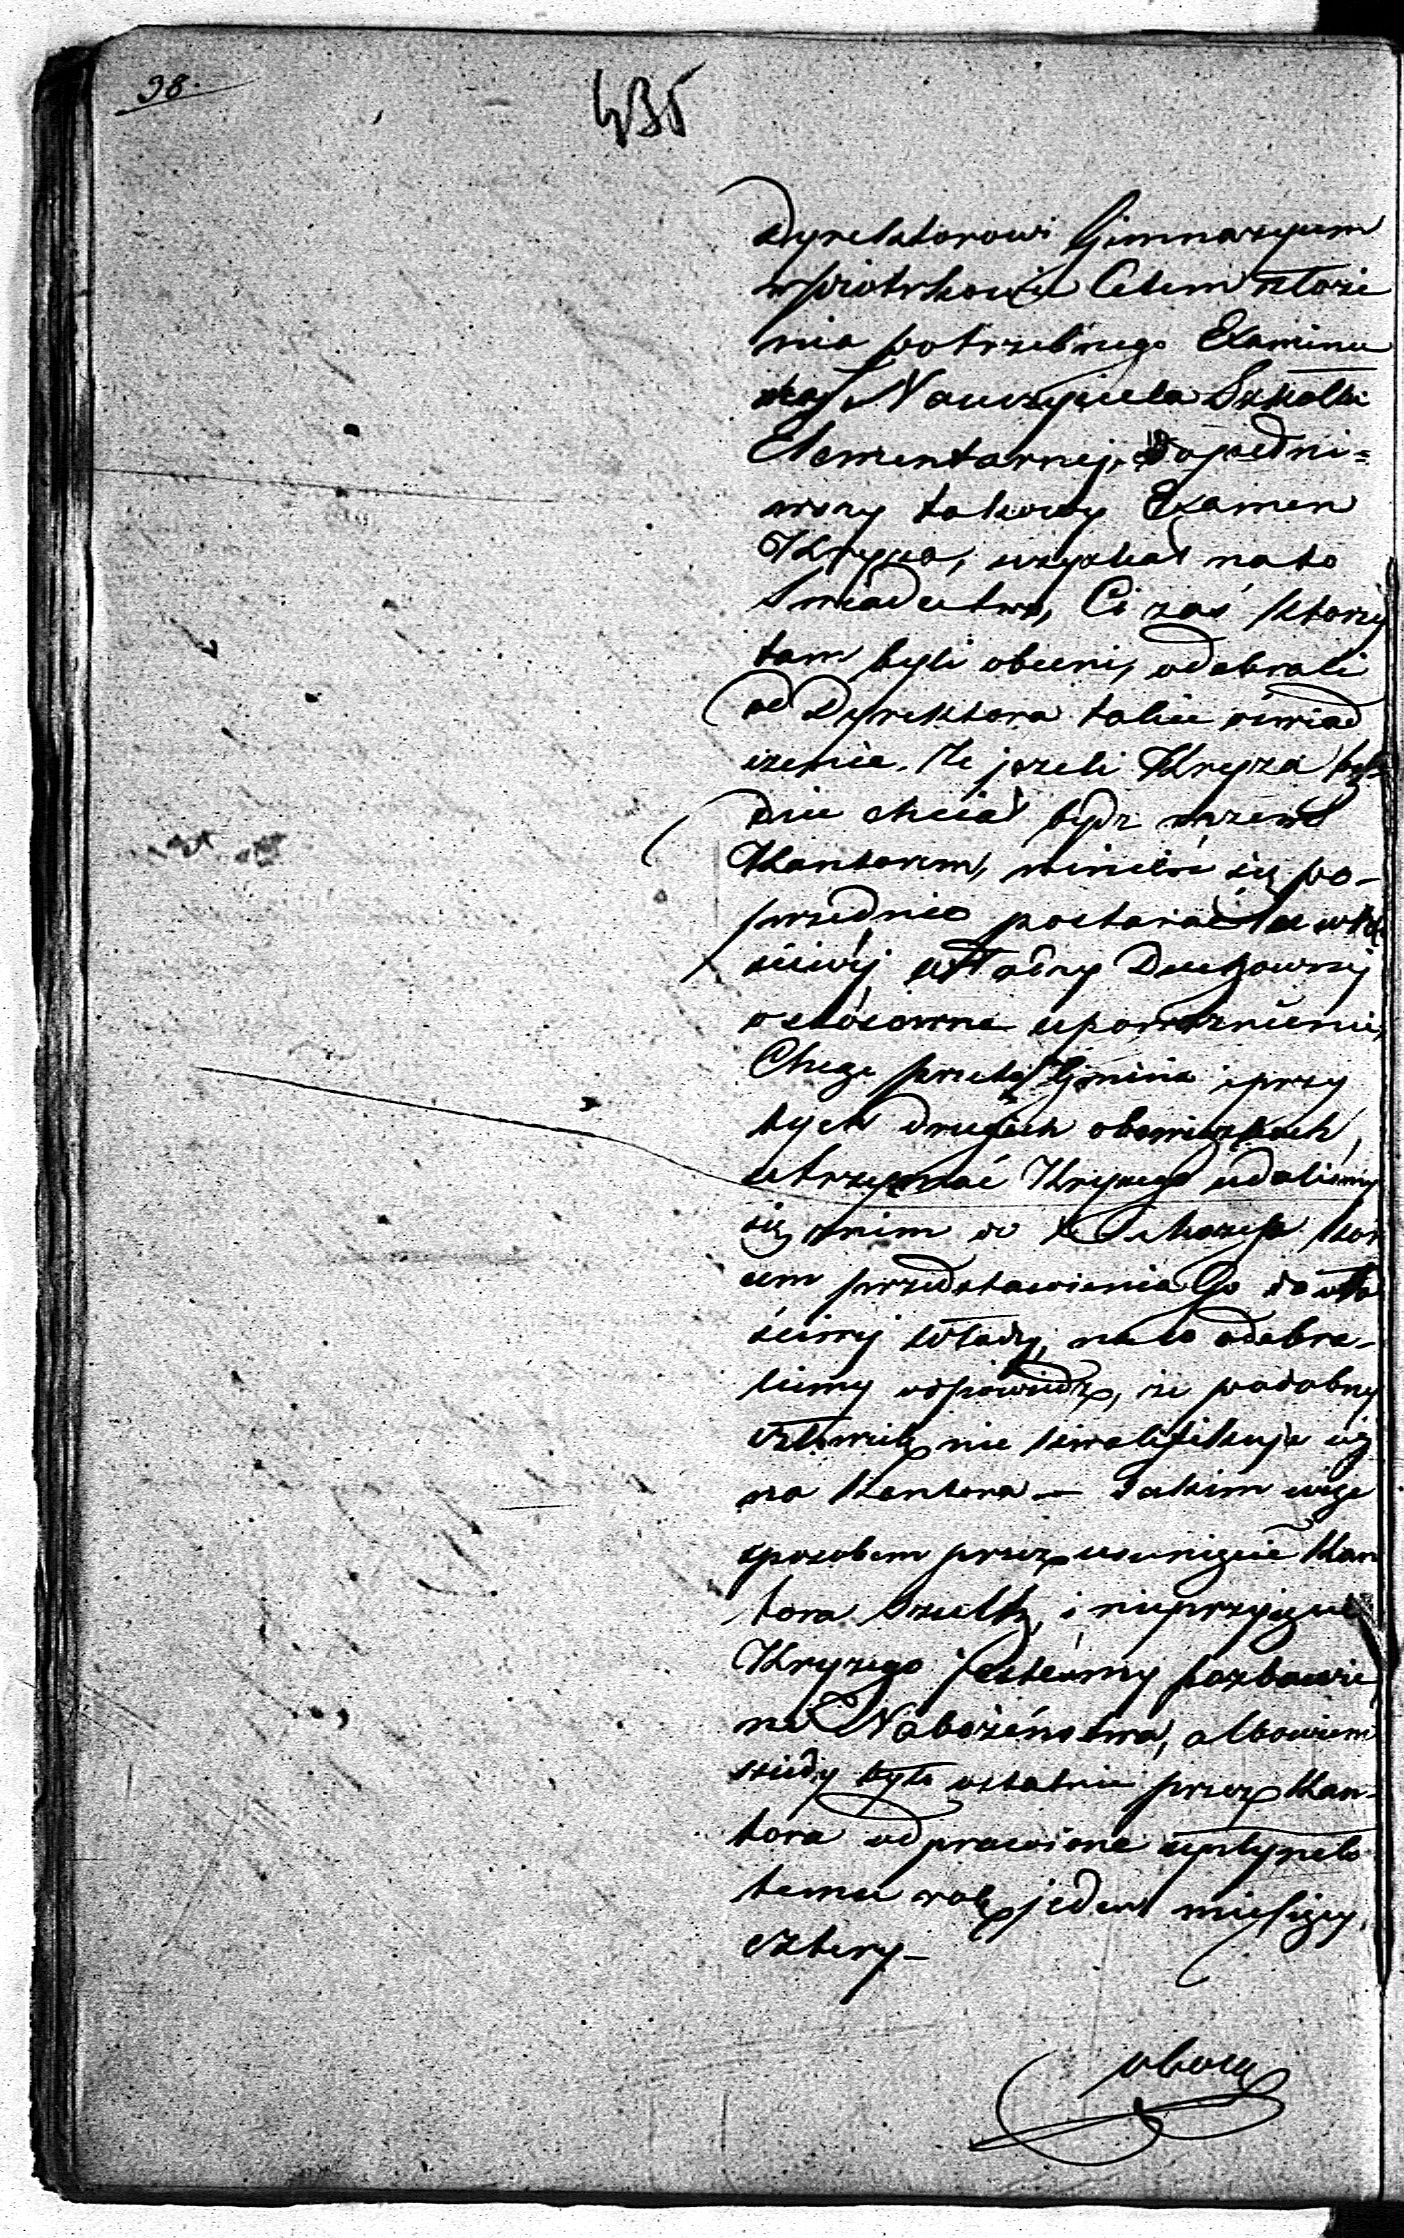 38.
435
Dyrektorowi Gimnazyum
w Piotrkowie Celem złoże
nia potrzebnego Examinu
na Nauczyciela Szkołki
Elementarnej, dopełni=
wszy takowy Examen
Kryza, uzyskał na to
Swiadectwo, Ci zaś ktorzy
tam byli obecni, odebrali
od Dyrektora takie oswiad
czenie. Ze jezeli Kryza bę
dzie chciał bydz razem
Kantorem, winien się po-
przednio postarać u wła
sciwéj władzy Duchownej
o stósowne upoważnienie,
Chcąc przeto Gmina i przy
tych drugich obowiązkach
utrzymać Kryzego udaliśmy
się z nim do
cem przedstawienia Go do wła
sciwej władzy, na co odebra-
lismy odpowiedz, ze podobny
człowiek nie kwalifikuje się
na Kantora — Takim więc
sposobem przez usunięcie Kan
tora Szultz, i nieprzyjęcie
Kryzego jestésmy pozbawie
ni Nabożeństwa, albowiem
kiedy było ostatnie przez Kan-
tora odprawione upłyneło
temu rok jeden miesięcy
cztery —
obecą